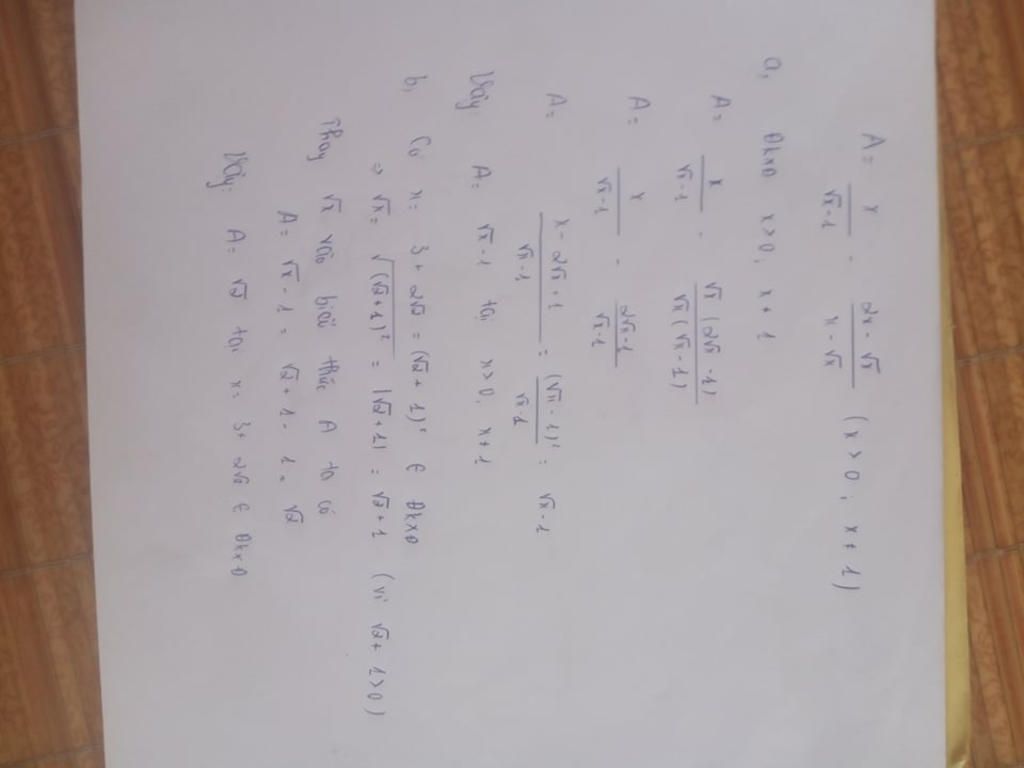 A = x/(√x-1) - (2x-√x)/(x-√x) (x>0; x≠1)
a, ĐKXĐ x>0, x≠1
A = x/(√x-1) - √x(2√x-1)/(√x(√x-1))
A = x/(√x-1) - (2√x-1)/(√x-1)
A = (x-2√x+1)/(√x-1) = (√x-1)²/(√x-1) = √x-1
Vậy: A = √x-1 tại x>0, x≠1
b, Có x = 3+2√2 = (√2+1)² ∈ ĐKXĐ
⇒ √x = √((√2+1)²) = |√2+1| = √2+1 (vì √2+1>0)
Thay √x vào biểu thức A ta có
A = √x-1 = √2+1-1 = √2
Vậy: A = √2 tại x = 3+2√2 ∈ ĐKXĐ